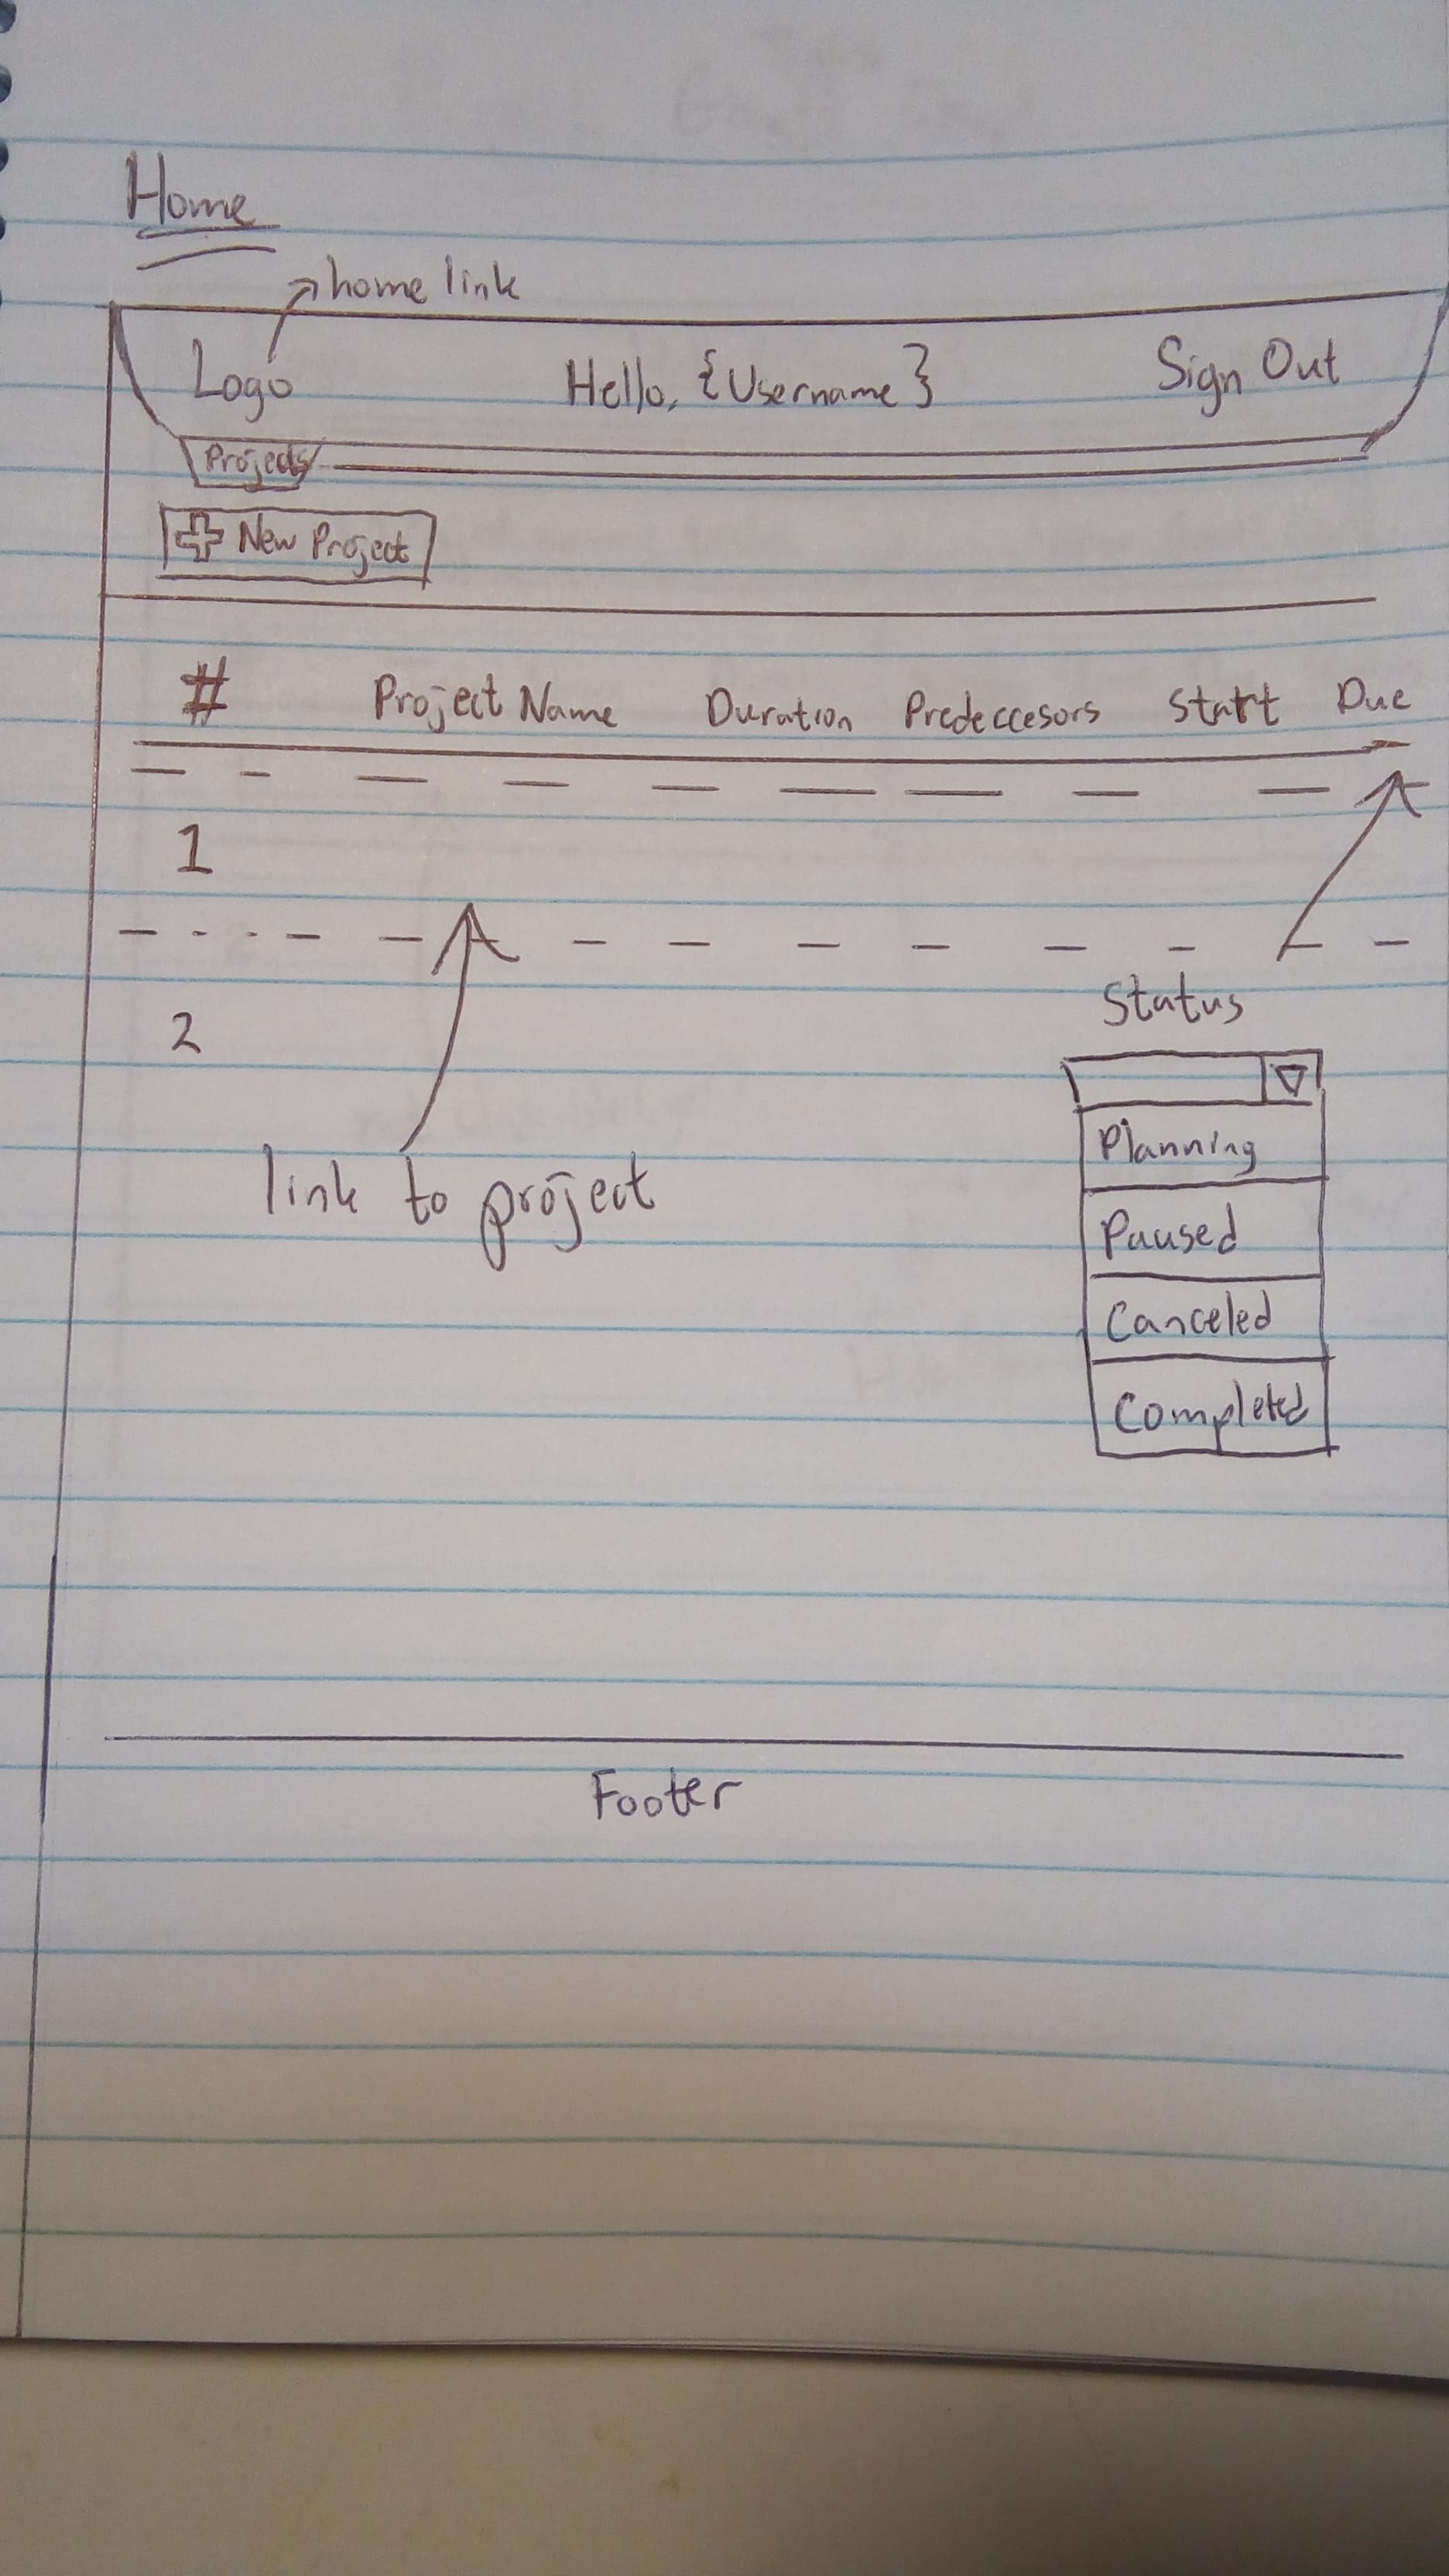 Home
home link
Logo Hello, {Username} Sign Out
Projects
New Project
# Project Name Duration Predeccesors Start Due
1
2
Status
link to project
Planning
Paused
Canceled
Completed
Footer